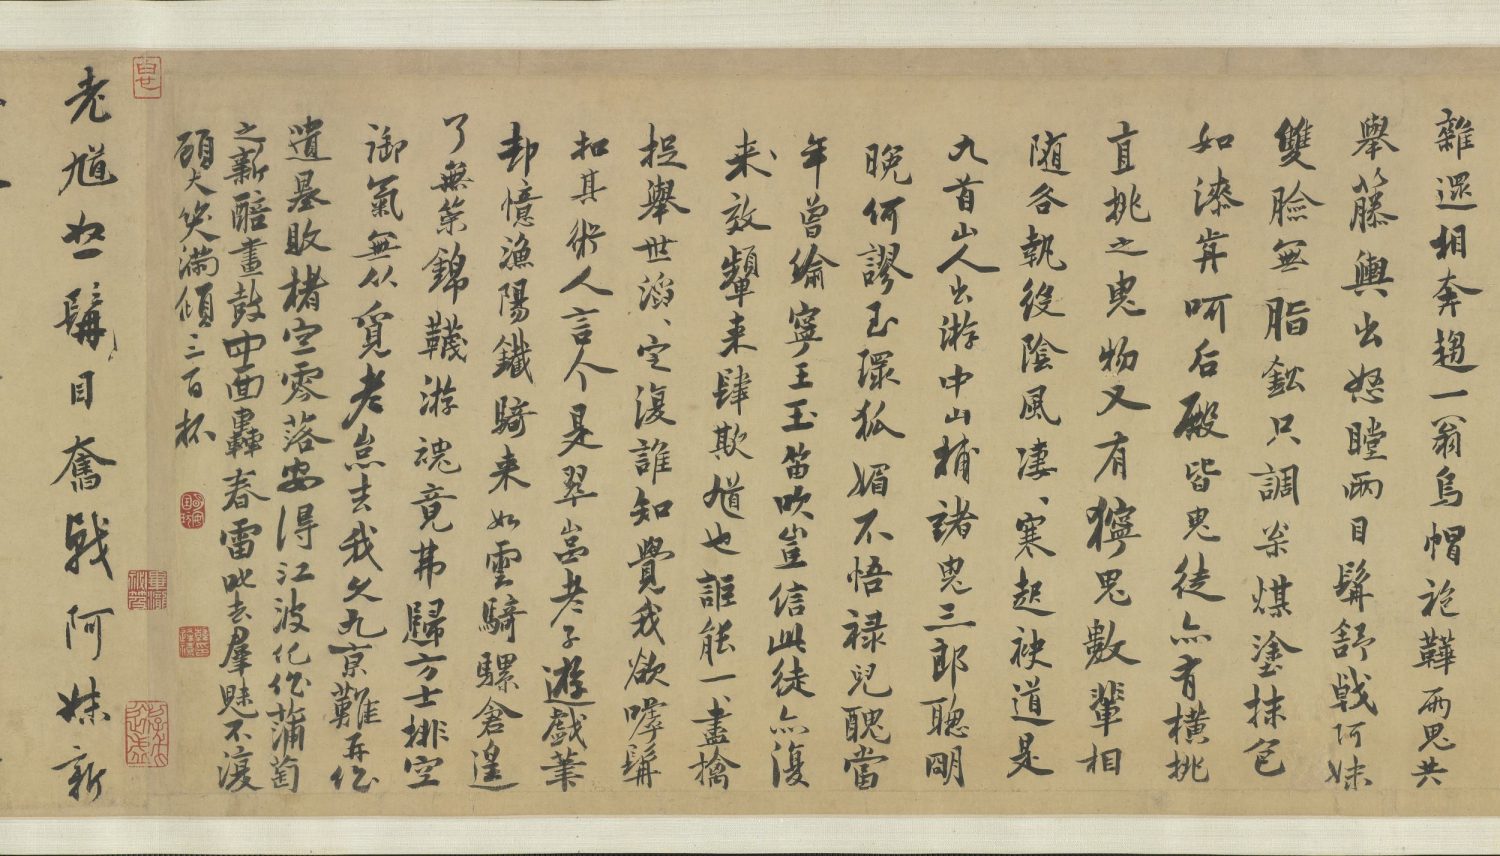 雜遝相奔趨一翁烏帽袍鞾兩鬼共
舉籐輿出怒瞠兩目髯舒戟阿妹
雙臉無脂鉛只調柒煤塗抹色
如漆舁呵后殿皆鬼徒亦有橫挑
直挑之鬼物又有獰鬼數輩相
随各執役陰風凄、寒起袂道是
九首山人出游中山捕諸鬼三郎聰明
晚何謬玉環狐媚不悟祿兒醜當
年曾偷寧王玉笛吹豈信此徒亦復
來效顰来肆欺馗也詎能一盡擒
捉舉世滔、定復誰知覺我欲嘑髯
扣其術人言个是翠嵓老子遊戲筆
却憶漁陽鐵騎来如雲騎騾倉遑
了無策錦韈游魂竟弗歸方士排空
御氣無从覓老嵓去我久九京難再作
遺墨敗楮空零落安得江波化作蒲萄
之新醅畫鼓中面轟春雷叱去羣魅不復
顧大笑滿傾三百杯
老馗怒髯目奮戟阿妹新